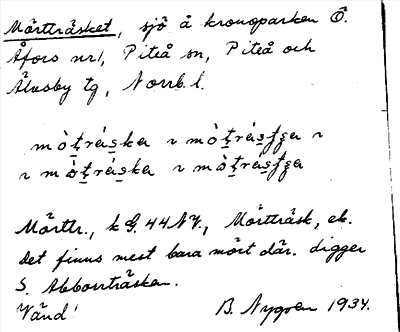 Mörtträsket, sjö å kronoparken Ö.
Åfors nr 1, Piteå sn, Piteå och
Älvsby tg, Norrb. l.
mò̀tráska ~ mò̀trásʃʒa ~
~ mò̀tráska ~ mò̀trásʃʒa
Mörttr., k G. 44 NV., Mörtträsk, ek.
Det finns mest bara mört där. Ligger
S. Abborrträsken.
Vänd!
B. Nygren 1934.